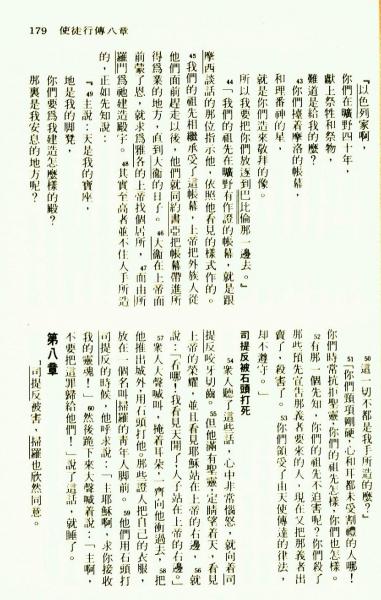 179 使徒行傳八章
『以色列家啊
你們在曠野四十年，
獻上祭牲和祭物，
難道是給我的麼？
43 你們擡着摩洛的帳幕，
和理番神的星，
就是你們造來敬拜的像。
所以我要把你們放逐到巴比倫那一邊去。』
44 「我們的祖先在曠野有作證的帳幕，就是跟
摩西談話的那位指示他，依照他看見的樣式作的。
45 我們的祖先相繼承受了這帳幕，上帝把外族人從
他們面前趕走以後，他們就同約書亞把帳幕帶進所
得爲業的地方，直到大衞的日子。46 大衞在上帝面
前蒙了恩，就求爲雅各的上帝找個居所，47 而由所
羅門爲祂建造殿宇。48 其實至高者並不住人手所造
的，正如先知說：
『49 主說：天是我的寶座，
地是我的脚凳，
你們要爲我建造怎麼樣的殿？
那裏是我安息的地方呢？
50 這一切不都是我手所造的麼？』
51 「你們頸項剛硬，心和耳都未受割禮的人哪！
你們時常抗拒聖靈；你們的祖先怎樣，你們也怎樣。
52 有那一個先知，你們的祖先不迫害呢？你們殺了
那些預先宣告那義者要來的人，現在又把那義者出
賣了，殺害了。53 你們領受了由天使傳達的律法，
却不遵守。」
司提反被石頭打死
54 衆人聽了這些話，心中非常惱怒，就向着司
提反咬牙切齒。55 但他滿有聖靈，定睛望着天，看見
上帝的榮耀，並且看見耶穌站在上帝的右邊，56 就
說：「看哪！我看見天開了，人子站在上帝的右邊。」
57 衆人大聲喊叫，掩着耳朵，一齊向他衝過去，58 把
他推出城外，用石頭打他。那些證人把自己的衣服，
放在一個名叫掃羅的青年人脚前。59 他們用石頭打
司提反的時候，他呼求說：「主耶穌啊，求你接收
我的靈魂！」60 然後跪下來大聲喊着說：「主啊，
不要把這罪歸給他們！」說了這話，就睡了。
第八章
1 司提反被害，掃羅也欣然同意。